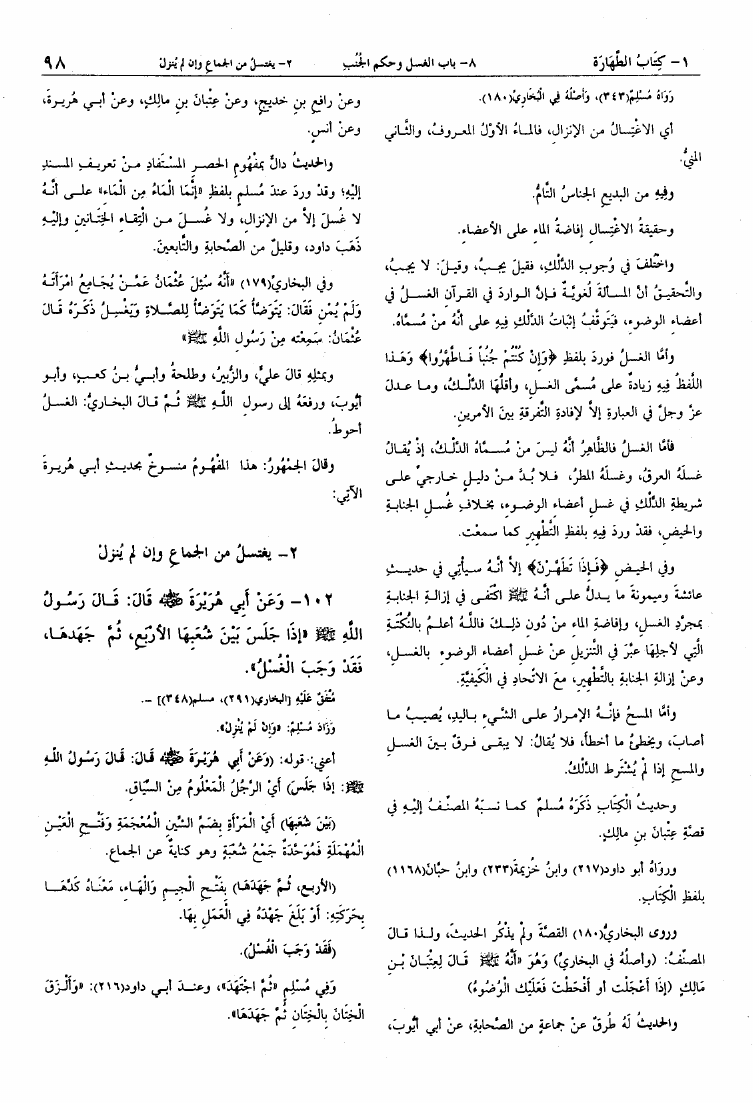 ١- كِتَابُ الطَّهَارَة ٨- باب الغسل وحكم الجُنُب ٢- يغتسلُ من الجماع وإن لم يُنزلْ ٩٨
رَوَاهُ مُسْلِمٌ(٣٤٣)، وَأَصْلُهُ فِي الْبُخَارِيِّ(١٨٠).
أي الاغْتِسالُ من الإنزال، فالماءُ الأوّلُ المعروفُ، والثّاني
المنيُّ.
وفيه من البديع الجناسُ التّامُّ.
وحقيقةُ الاغْتِسال إفاضةُ الماءِ على الأعضاء.
واخْتُلف في وُجوب الدَّلْكِ، فقيلَ يجبُ، وقيلَ: لا يجبُ،
والتّحقيقُ أنَّ المسألةَ لُغويّةٌ فإنَّ الواردَ في القرآن الغسلُ في
أعضاء الوضوء، فيتوقّفُ إثباتُ الدَّلْكِ فيه على أنّهُ منْ مُسمَّاهُ.
وأمّا الغسلُ فوردَ بلفظِ ﴿وَإِنْ كُنْتُمْ جُنُباً فَاطَّهَّرُوا﴾ وَهَذا
اللّفظُ فيه زيادةٌ على مُسمَّى الغسل، وأقلُّها الدَّلْكُ، وما عدلَ
عزَّ وجلَّ في العبارة إلاَّ لإفادة التّفرقة بينَ الأمرين.
فأمّا الغسلُ فالظّاهرُ أنّهُ ليسَ منْ مُسمَّاهُ الدَّلْكُ، إذْ يُقالُ
غسلَهُ العرقُ، وغسلَهُ المطرُ، فلا بُدَّ منْ دليلٍ خارجيٍّ على
شريطةِ الدَّلْكِ في غسلِ أعضاء الوضوء، بخلاف غُسلِ الجنابةِ
والحيضِ، فقدْ وردَ فيه بلفظِ التّطْهيرِ كما سمعتَ.
وفي الحيضِ ﴿فَإِذَا تَطَهَّرْنَ﴾ إلاَّ أنّهُ سيأتي في حديثِ
عائشةَ وميمونةَ ما يدلُّ على أنّهُ ﷺ اكْتفى في إزالةِ الجنابةِ
بمجرّدِ الغسل، وإفاضةِ الماءِ منْ دُونِ دَلكٍ فاللّهُ أعلمُ بالنُّكْتةِ
الّتي لأجلِها عبّرَ في التّنزيلِ عنْ غسلِ أعضاءِ الوضوءِ بالغسل،
وعنْ إزالةِ الجنابةِ بالتّطْهير، معَ الاتّحادِ في الكيْفيّةِ.
وأمّا المسحُ فإنّهُ الإمرارُ على الشّيءِ باليدِ، يُصيبُ ما
أصابَ، ويخطئُ ما أخطأَ، فلا يُقالُ: لا يبقى فرقٌ بينَ الغسلِ
والمسحِ إذا لمْ يُشْترط الدَّلْكُ.
وحديثُ الْكِتابِ ذَكَرَهُ مُسلمٌ كما نسبَهُ المصنّفُ إليه في
قصّةِ عِتْبانَ بنِ مالكٍ.
ورواهُ أبو داود(٢١٧) وابنُ خُزيمةَ(٢٣٣) وابنُ حبّانَ(١١٦٨)
بلفظِ الْكِتابِ.
وروى البخاريُّ(١٨٠) القصّةَ ولمْ يذْكُر الحديثَ، ولذا قالَ
المصنّفُ: (وأصلُهُ في البخاريِّ) وَهُوَ «أنّهُ ﷺ قالَ لِعِتْبانَ بْنِ
مَالِكٍ (إذَا أَعْجَلْت أو أَقْحَطْتَ فَعَلَيْك الْوُضُوءُ)
والحديثُ لَهُ طُرقٌ عنْ جماعةٍ من الصّحابةِ، عنْ أبي أيّوبَ،
وعنْ رافعِ بنِ خديجٍ، وعنْ عِتْبانَ بنِ مالكٍ، وعنْ أبي هُريرةَ،
وعنْ أنسٍ.
والحديثُ دالٌّ بمفْهومِ الحصرِ المسْتفادِ منْ تعريفِ المسندِ
إليْهِ؛ وقدْ وردَ عندَ مُسلمٍ بلفظِ «إنّمَا الْمَاءُ مِن الْمَاءِ» على أنّهُ
لا غُسلَ إلاَّ من الإنزال، ولا غُسلَ من الْتِقاءِ الختانينِ وإليْهِ
ذَهَبَ داود، وقليلٌ من الصّحابةِ والتّابعينَ.
وفي البخاريِّ(١٧٩) «أَنَّهُ سُئِلَ عُثْمَانُ عَمَّنْ يُجَامِعُ امْرَأَتَهُ
وَلَمْ يُمْنِ فَقَالَ: يَتَوَضَّأُ كَمَا يَتَوَضَّأُ لِلصَّلاةِ وَيَغْسِلُ ذَكَرَهُ قَالَ
عُثْمَانُ: سَمِعْته مِنْ رَسُولِ اللَّهِ ﷺ»
وبمثلِهِ قالَ عليٌّ، والزُّبيرُ، وطلحةُ وأبيُّ بنُ كعبٍ، وأبو
أيّوبَ، ورفعَهُ إلى رسولِ اللَّهِ ﷺ ثُمَّ قالَ البخاريُّ: الغسلُ
أحوطُ.
وقالَ الجمْهُورُ: هذا المفْهُومُ منسوخٌ بحديثِ أبي هُريرةَ
الآتِي:
٢- يغتسلُ من الجماع وإن لم يُنزلْ
١٠٢- وَعَنْ أَبِي هُرَيْرَةَ ﷺ قَالَ: قَالَ رَسُولُ
اللَّهِ ﷺ «إذَا جَلَسَ بَيْنَ شُعَبِهَا الأرْبَعِ، ثُمَّ جَهَدَهَا،
فَقَدْ وَجَبَ الْغُسْلُ».
مُتَّفَقٌ عَلَيْهِ [البخاري(٢٩١)، مسلم(٣٤٨)] -.
وَزَادَ مُسْلِمٌ: «وَإِنْ لَمْ يُنْزِلْ».
أعني: قوله: (وَعَنْ أَبِي هُرَيْرَةَ ﷺ قَالَ: قَالَ رَسُولُ اللَّهِ
ﷺ: إذَا جَلَسَ) أَيْ الرَّجُلُ الْمَعْلُومُ مِنْ السِّيَاقِ.
(بَيْنَ شُعَبِهَا) أَيْ الْمَرْأَةِ بِضَمِّ الشِّينِ الْمُعْجَمَةِ وَفَتْحِ الْعَيْنِ
الْمُهْمَلَةِ فَمُوَحَّدَةٌ جَمْعُ شُعْبَةٍ وهو كنايةٌ عن الجماعِ.
(الأربعِ، ثُمَّ جَهَدَهَا) بِفَتْحِ الْجِيمِ وَالْهَاءِ، مَعْنَاهُ كَدَّهَا
بِحَرَكَتِهِ: أَوْ بَلَغَ جَهْدَهُ فِي الْعَمَلِ بِهَا.
(فَقَدْ وَجَبَ الْغُسْلُ).
وَفِي مُسْلِمٍ «ثُمَّ اجْتَهَدَ»، وعندَ أبي داود(٢١٦): «وَأَلْزَقَ
الْخِتَانَ بِالْخِتَانِ ثُمَّ جَهَدَهَا».